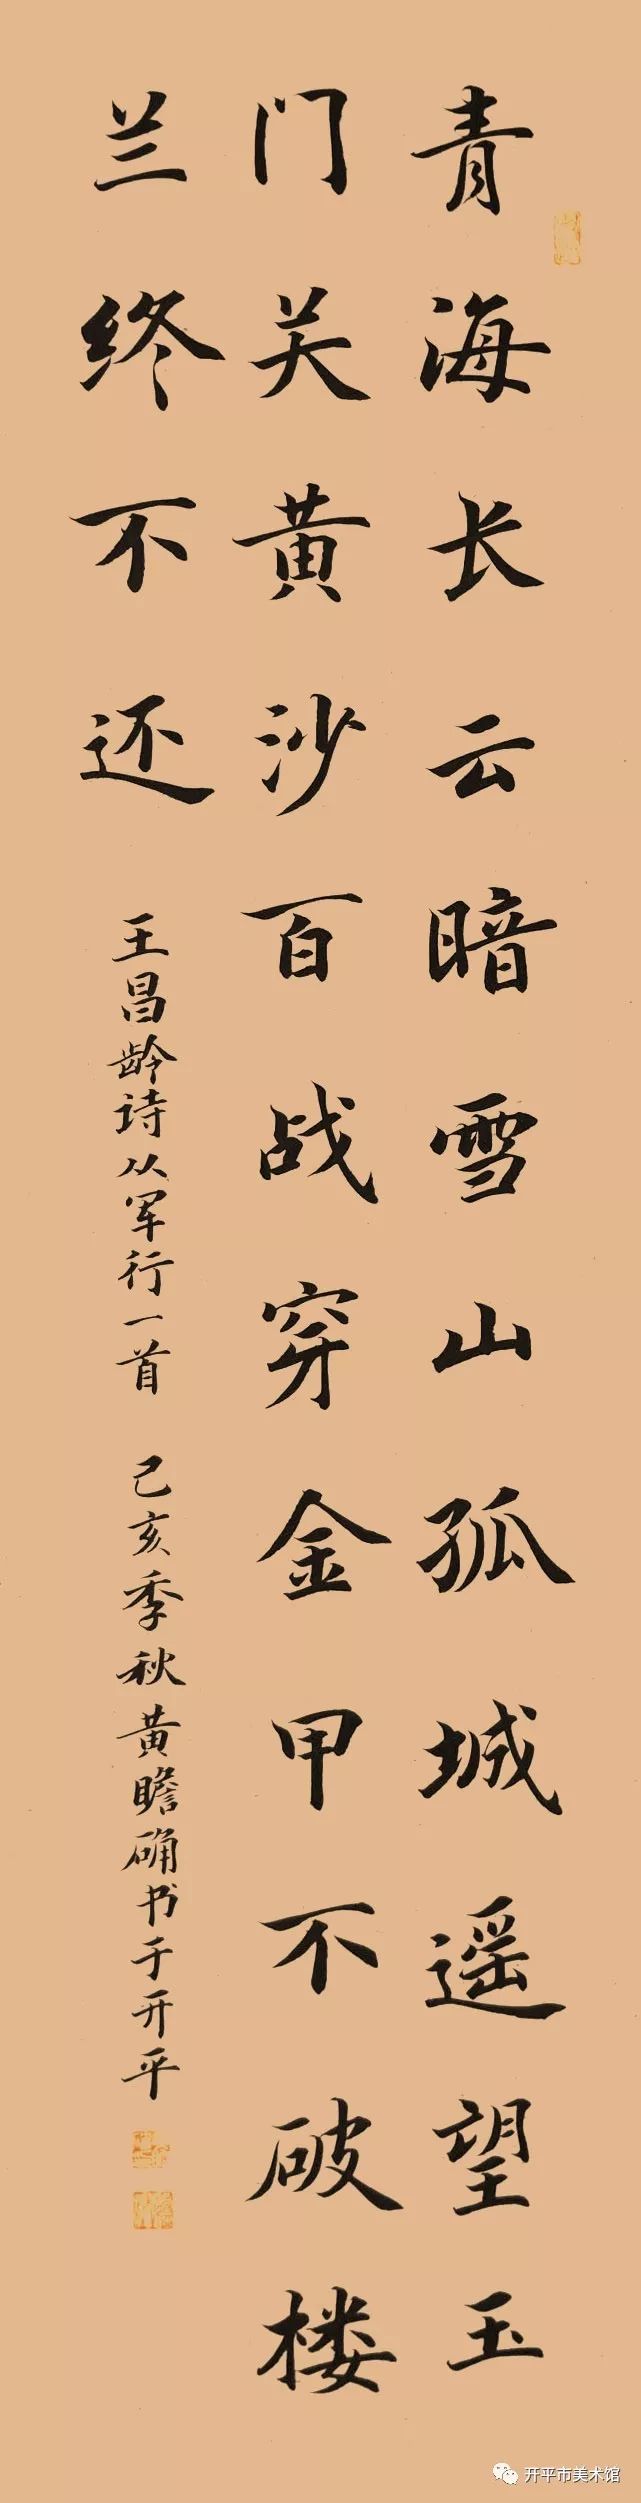 青海长云暗雪山孤城遥望玉
门关黄沙百战穿金甲不破楼
兰终不还
王昌龄诗从军行一首 己亥季秋黄瞻确书于开平
开平市美术馆